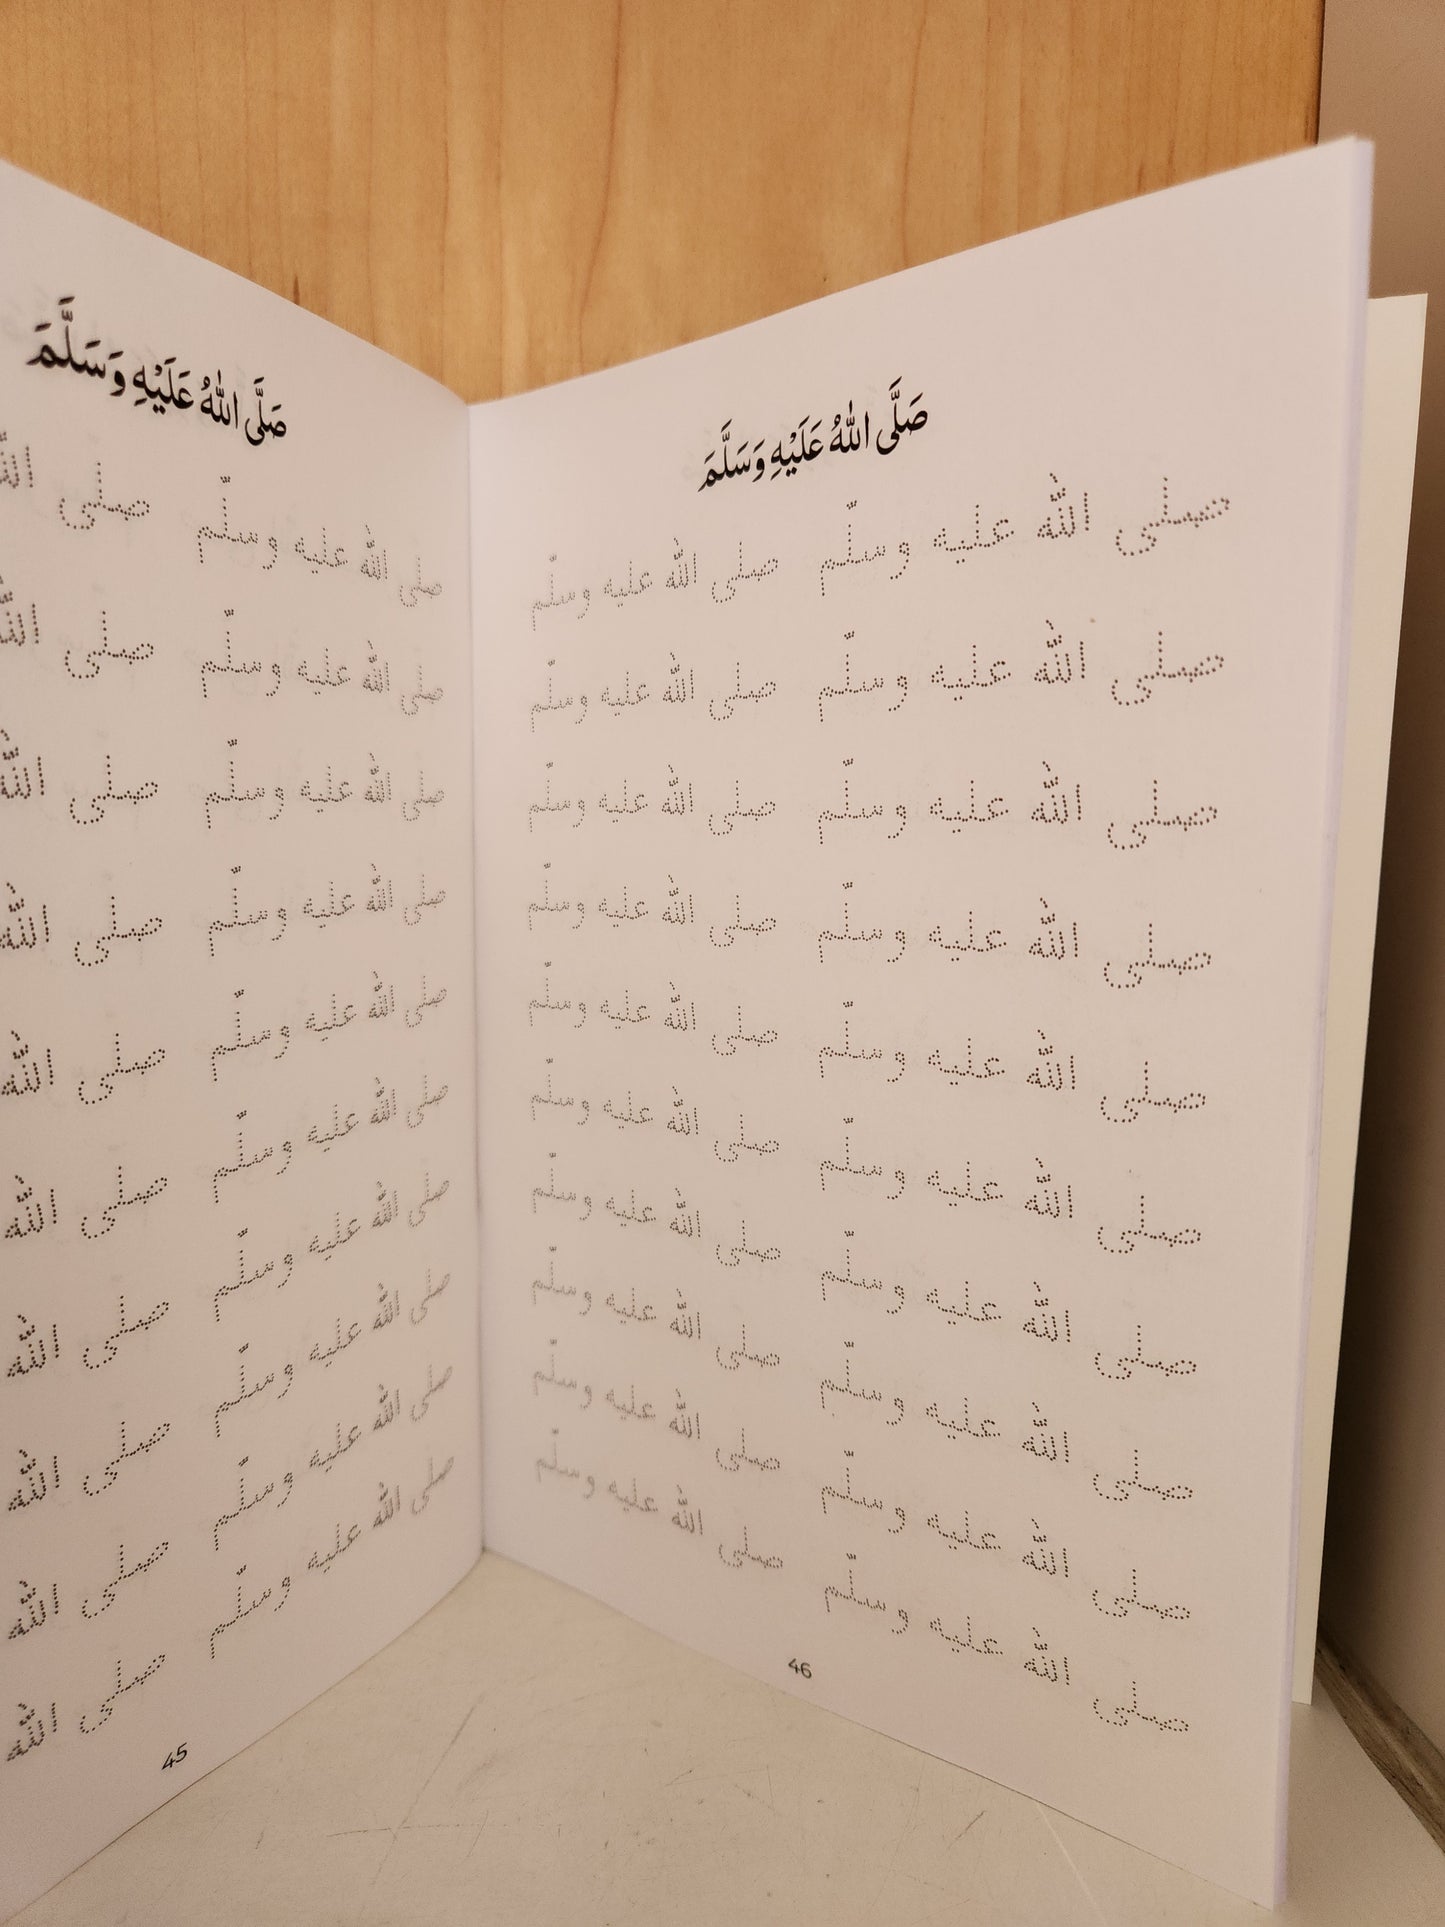 صَلَّى اللهُ عَلَيْهِ وَسَلَّمَ
صلى الله عليه وسلّم صلى الله
صلى الله عليه وسلّم صلى الله
صلى الله عليه وسلّم صلى الله
صلى الله عليه وسلّم صلى الله
صلى الله عليه وسلّم صلى الله
صلى الله عليه وسلّم صلى الله
صلى الله عليه وسلّم صلى الله
صلى الله عليه وسلّم صلى الله
صلى الله عليه وسلّم صلى الله
صلى الله عليه وسلّم صلى الله
45
صَلَّى اللهُ عَلَيْهِ وَسَلَّمَ
صلى الله عليه وسلّم صلى الله عليه وسلّم
صلى الله عليه وسلّم صلى الله عليه وسلّم
صلى الله عليه وسلّم صلى الله عليه وسلّم
صلى الله عليه وسلّم صلى الله عليه وسلّم
صلى الله عليه وسلّم صلى الله عليه وسلّم
صلى الله عليه وسلّم صلى الله عليه وسلّم
صلى الله عليه وسلّم صلى الله عليه وسلّم
صلى الله عليه وسلّم صلى الله عليه وسلّم
صلى الله عليه وسلّم صلى الله عليه وسلّم
صلى الله عليه وسلّم صلى الله عليه وسلّم
46